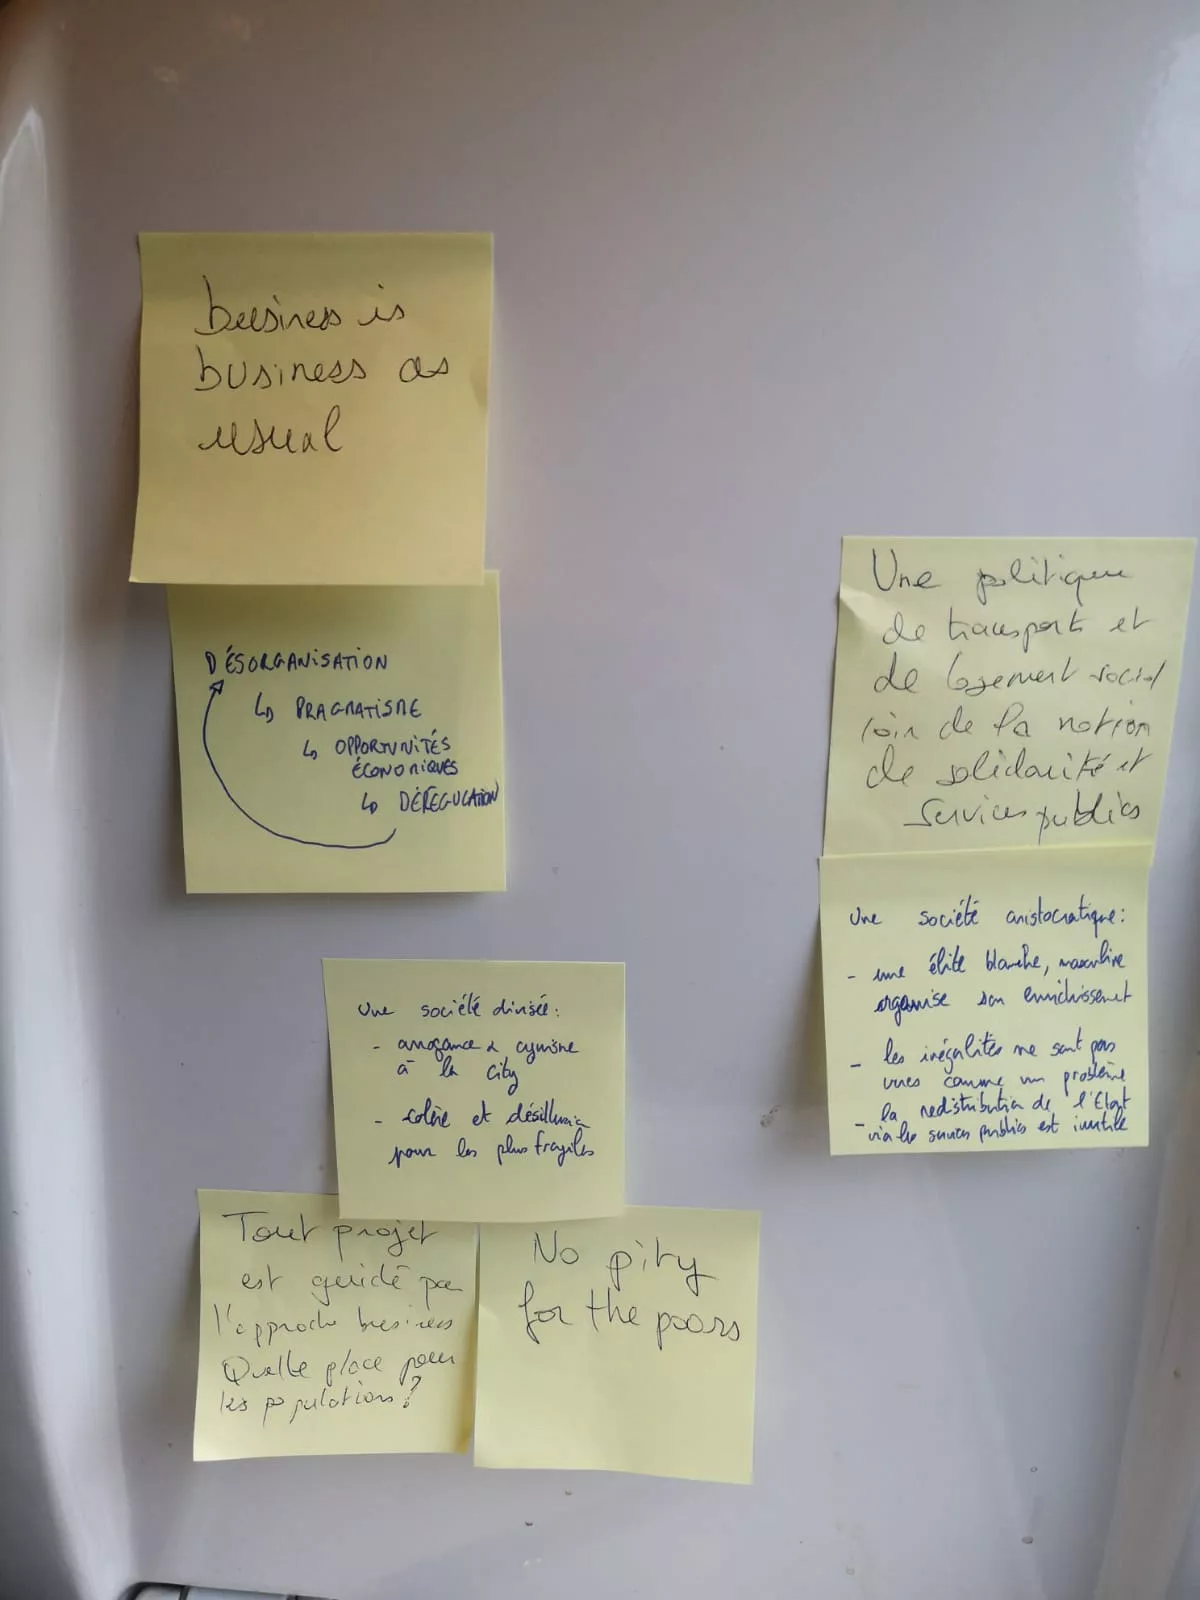 business is
business as
usual
DÉSORGANISATION
↳ PRAGMATISME
↳ OPPORTUNITÉS
ÉCONOMIQUES
↳ DÉRÉGULATION
Une politique
de transports et
de logement social
loin de la notion
de solidarité et
Services publics
Une société aristocratique:
- une élite blanche, masculine
organise son enrichissement
- les inégalités ne sont pas
vues comme un problème
la redistribution de l'Etat
- via les services publics est inutile
Une société divisée:
- arrogance & cynisme
à la city
- colère et désillusion
pour les plus fragiles
Tout projet
est guidé par
l'approche business
Quelle place pour
les populations?
No pity
for the poors